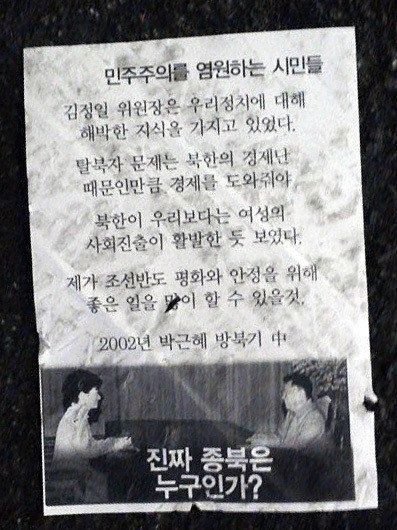 민주주의를 염원하는 시민들
김정일 위원장은 우리정치에 대해
해박한 지식을 가지고 있었다.
탈북자 문제는 북한의 경제난
때문인만큼 경제를 도와줘야
북한이 우리보다는 여성의
사회진출이 활발한 듯 보였다.
제가 조선반도 평화와 안정을 위해
좋은 일을 많이 할 수 있을것.
2002년 박근혜 방북기 中
진짜 종북은
누구인가?